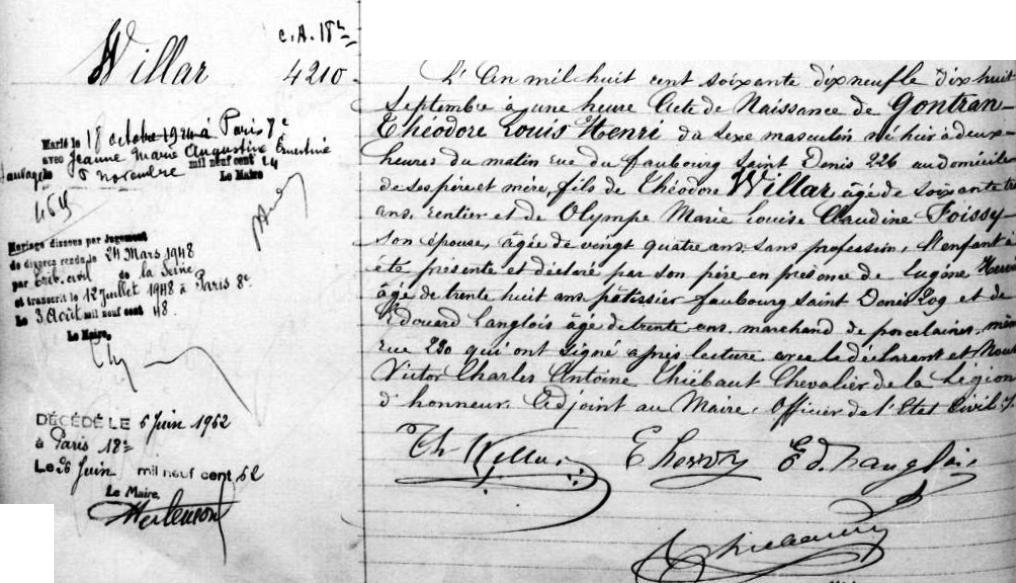 C.A. 18e
Willar
4210.
Marié le 18 octobre 1924 à Paris 7e
avec Jeanne Marie Augustine Ernestine
5 novembre mil neuf cent 24
Le Maire
Mariage dissous par Jugement
de divorce rendu le 24 Mars 1948
par Trib. civil de la Seine
et transcrit le 12 Juillet 1948 à Paris 8e
Le 3 Août mil neuf cent 48.
Le Maire,
DÉCÉDÉ LE 6 Juin 1962
à Paris 18e
Le 26 Juin mil neuf cent 62
Le Maire,
L'An mil huit cent soixante dix neuf le dix huit
Septembre à une heure Acte de Naissance de Gontran
Théodore Louis Henri du sexe masculin né hier à deux
heures du matin rue du faubourg Saint Denis 226 au domicile
de ses père et mère, fils de Théodore Willar, âgé de soixante
ans, rentier et de Olympe Marie Louise Claudine Foissy
son épouse, âgée de vingt quatre ans sans profession, L'enfant a
été présenté et déclaré par son père en présence de Eugène
âgé de trente huit ans pâtissier faubourg Saint Denis 209 et de
Edouard Langlois âgé de trente ans, marchand de porcelaines, même
rue 230 qui ont signé après lecture avec le déclarant et Nous
Victor Charles Antoine Thiébaut Chevalier de la Légion
d'honneur, Adjoint au Maire, Officier de l'Etat Civil.
Th. Willar
E Hervy
Ed. Langlois
Thiebaut